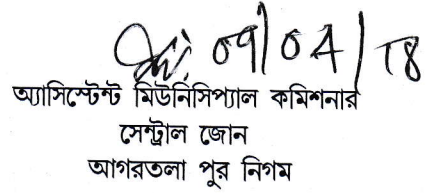 09/04/18
অ্যাসিস্টেন্ট মিউনিসিপ্যাল কমিশনার
সেন্ট্রাল জোন
আগরতলা পুর নিগম